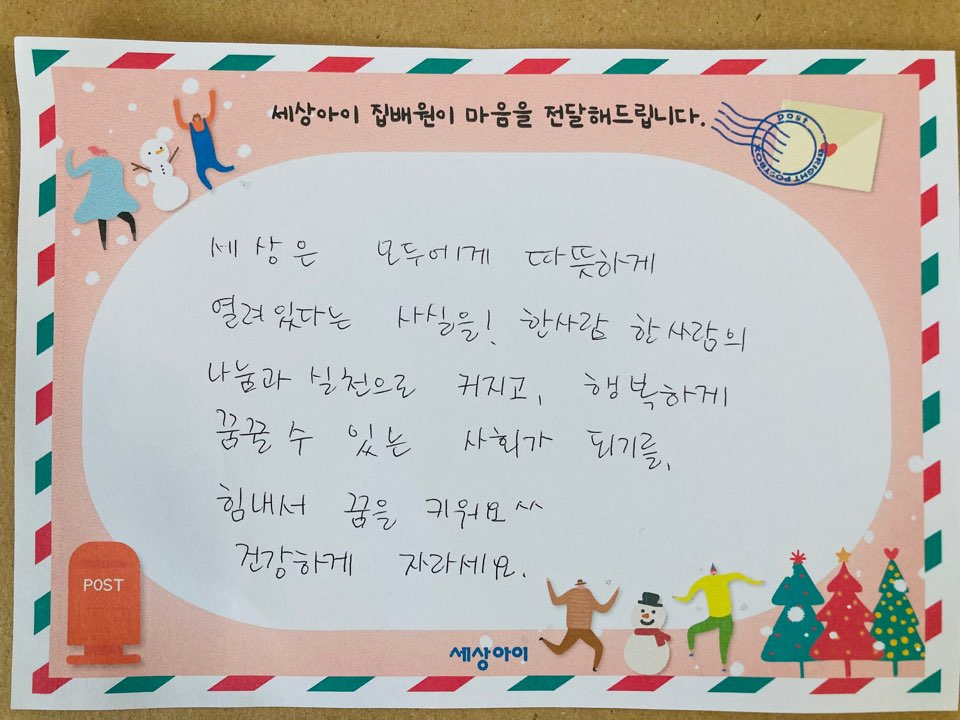 세상아이 집배원이 마음을 전달해드립니다.
POST
BRIGHT POSTBOX
세상은 모두에게 따뜻하게
열려있다는 사실을! 한사람 한사람의
나눔과 실천으로 커지고, 행복하게
꿈꿀 수 있는 사회가 되기를,
힘내서 꿈을 키워요^^
건강하게 자라세요.
POST
세상아이